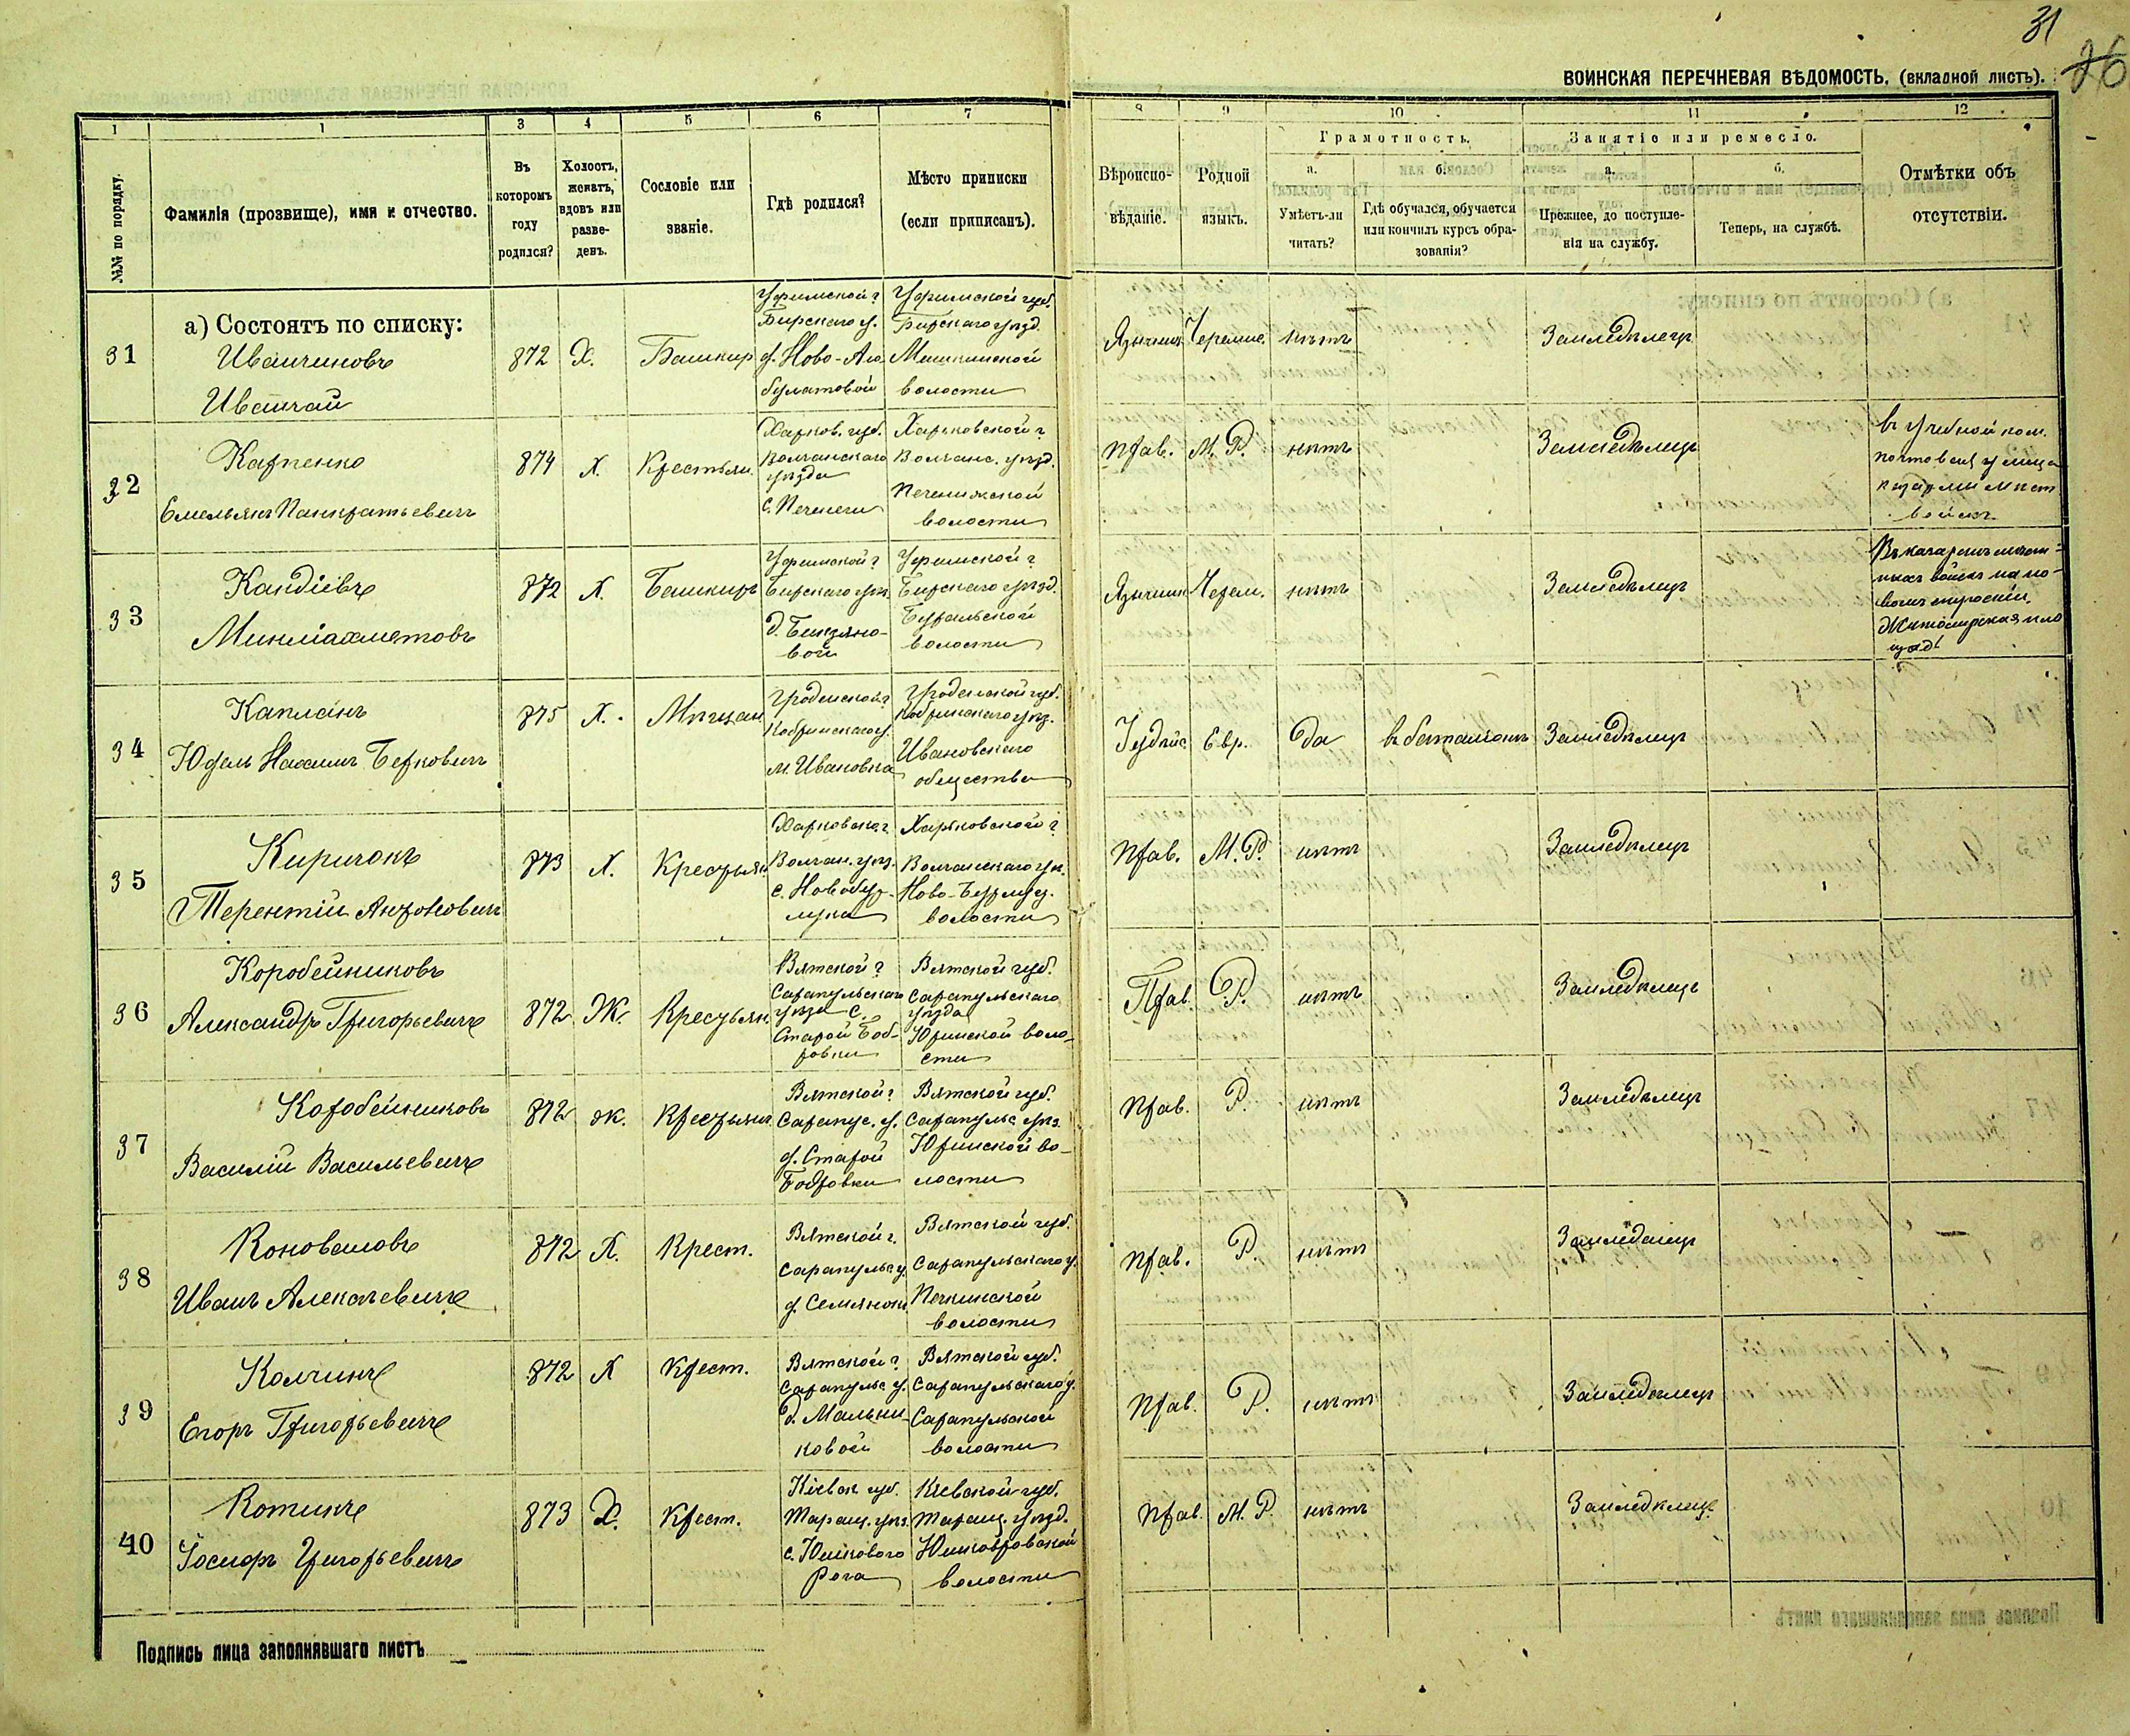 31
26
ВОИНСКАЯ ПЕРЕЧНЕВАЯ ВѢДОМОСТЬ, (вкладной листъ).
1 1 3 4 5 6 7 8 9 10 11 12
№№ по порядку.
Фамилія (прозвище), имя и отчество.
Въ
которомъ
году
родился?
Холостъ,
женатъ,
вдовъ или
разве-
денъ.
Сословіе или
званіе.
Гдѣ родился?
Мѣсто приписки
(если приписанъ).
Вѣроиспо-
вѣданіе.
Родной
языкъ.
Грамотность.
а.
Умѣетъ-ли
читать?
б.
Гдѣ обучался, обучается
или кончилъ курсъ обра-
зованія?
Занятіе или ремесло.
а.
Прежнее, до поступле-
нія на службу.
б.
Теперь, на службѣ.
Отмѣтки объ
отсутствіи.
а) Состоятъ по списку:
31
Иванчиковъ
Иванчай
872
Х.
Башкир
Уфимской г.
Бирскаго у.
д. Ново-Аю
булатовой
Уфимской губ.
Бирскаго уѣзд.
Мишкинской
волости
Язычник
Черемис.
нѣтъ
Земледѣлецъ
32
Карпенко
Емельянъ Панкратьевичъ
874
х
Крестьян.
Харков. губ.
Волчанскаго
уѣзда
с. Печенеги
Харьковской г.
Волчанс. уѣзд.
Печенижской
волости
Прав.
М. Р.
нѣтъ
Земледѣлецъ
въ Учебной ком.
почтовая улица
казармы мѣст.
войскъ
33
Кандіевъ
Минліахметовъ
872
Х.
Башкиръ
Уфимской г.
Бирскаго уѣз.
д. Бикзяно-
вой
Уфимской г.
Бирскаго уѣзд.
Бураьской
волости
Язычник
Черем.
нѣтъ
Земледѣлецъ
Въ казармѣ мѣст-
ныхъ войскъ на но-
вомъ строеніи,
Житомирская пло
щадь
34
Капланъ
Юдель Нахимъ Берковичъ
875
Х.
Мѣщан
Гродненской г.
Кобринскаго у.
м. Ивановка
Гродненской губ.
Кобринскаго уѣз.
Ивановскаго
общества
Іудейс
Евр.
да
въ баталіонѣ
Земледѣлецъ
35
Киричокъ
Терентій Антоновичъ
873
Х.
Крестьян
Харковско. г.
Волчан. уѣз.
с. Новобур-
лука
Харьковской г.
Волчанскаго уѣз.
Ново-Бурлуц.
волости
Прав.
М. Р.
нѣтъ
Земледѣлецъ
36
Коробейниковъ
Александръ Григорьевичъ
872
Ж.
Крестьян.
Вятской г.
Сарапульскаго
уѣзда с.
Старой Боб-
ровки
Вятской губ.
Сарапульскаго
уѣзда
Юринской воло-
сти
Прав.
Р.
нѣтъ
Земледѣлецъ
37
Коробейниковъ
Василій Васильевичъ
872
ж.
Крестьянин
Вятской г.
Сарапус. у.
д. Старой
Бобровки
Вятской губ.
Сарапульс уѣз.
Юринской во-
лости
Прав.
Р.
нѣтъ
Земледѣлецъ
38
Коноваловъ
Иванъ Алексѣевичъ
872
Х.
Крест.
Вятской г.
Сарапульс у.
д. Семянони
Вятской губ.
Сарапульскаго у.
Печкинской
волости
Прав.
Р.
нѣтъ
Земледѣлецъ
39
Колчинъ
Егоръ Григорьевичъ
872
Х
Крест.
Вятской г.
Сарапульс у.
д. Мальни-
ковой
Вятской губ.
Сарапульскаго у.
Сарапульской
волости
Прав.
Р.
нѣтъ
Земледѣлецъ
40
Котикъ
Іосифъ Григорьевичъ
873
Х.
Крест.
Кіевск губ.
Таращ. уѣз.
с. Юшкового
Рога
Кіевской губ.
Таращ. уѣзд.
Юшковровской
волости
Прав.
М. Р.
нѣтъ
Земледѣлец
Подпись лица заполнявшаго листъ